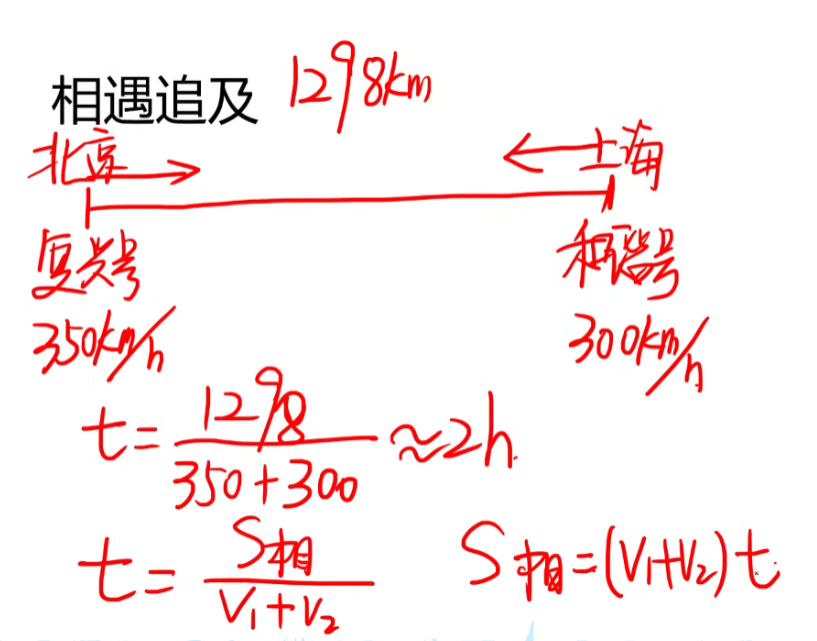 相遇追及 1298km
北京 上海
复兴号 和谐号
350km/h 300km/h
t=1298/350+300≈2h
t=S相/V₁+V₂ S相=(V₁+V₂)t